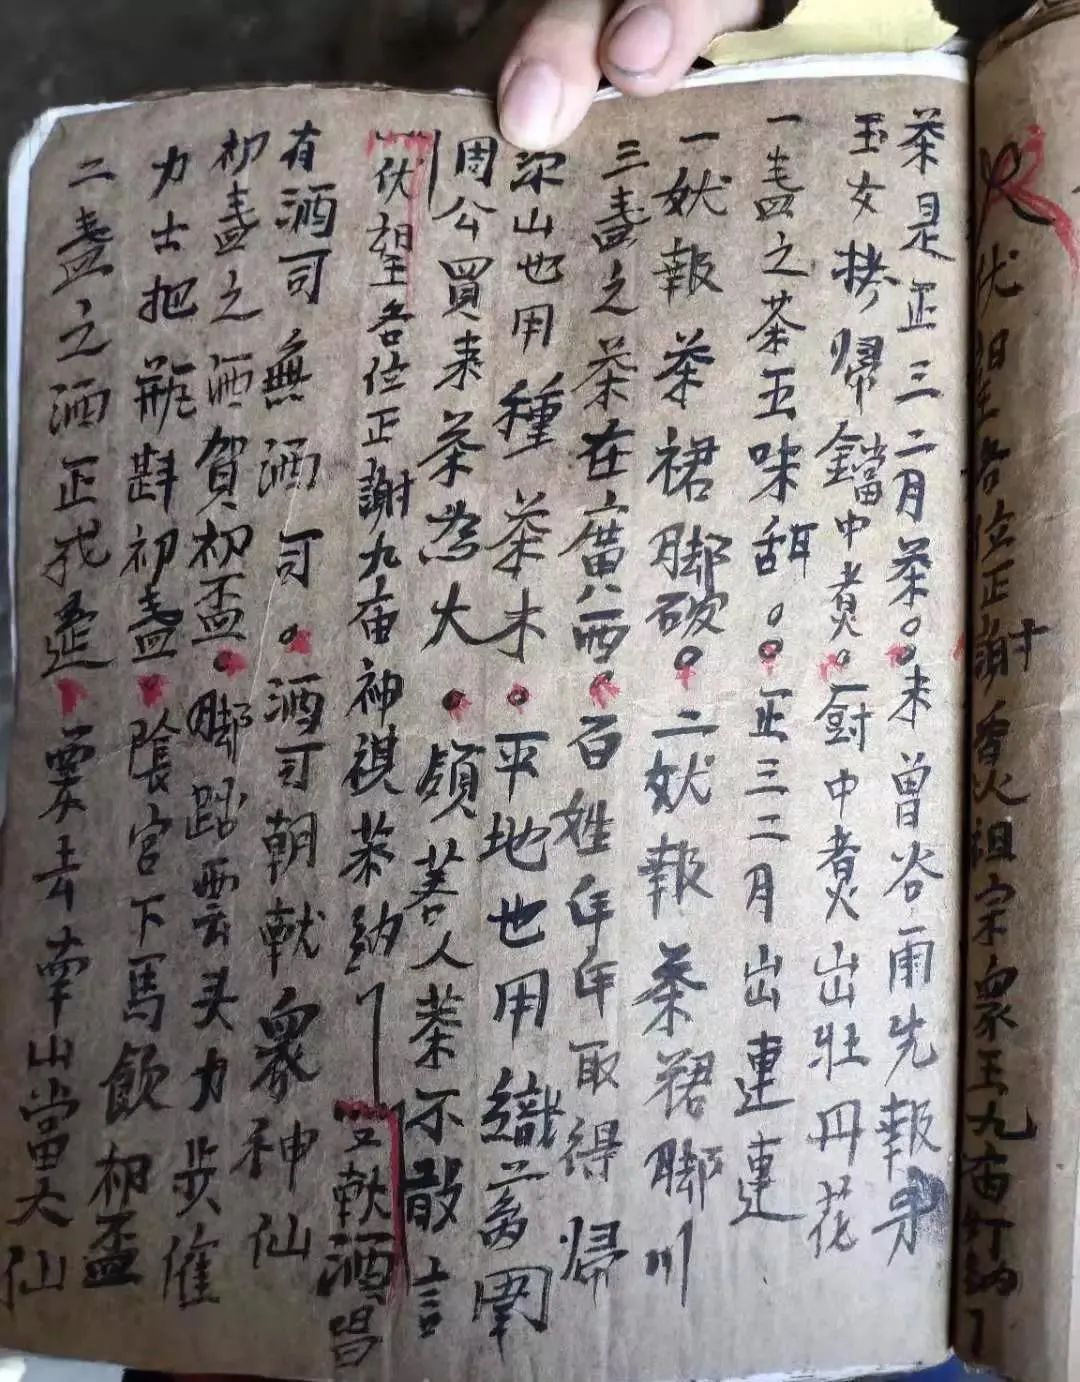 伏望各位正謝香火祖宗衆玉九亩灯納了
茶是正三二月茶。未曾谷雨先報芽
玉女捞歸鐺中煮。厨中煮出壮丹花
一盏之茶五味甜。正三二月出連連
一妖報茶裙脚破。二妖報茶裙脚川
三盏之茶在廣西。百姓年年取得歸
深山也用種茶木。平地也用織萬圍
周公買来茶為大。領善人茶不敢言
伏望各位正謝九亩神祺茶納了 又献酒唱
有酒司無酒司。酒司朝献衆神仙
初盏之酒賀初盃。脚踏雲头力步催
力士把瓶斟初盏。陰宮下馬飲初盃
二盏之酒正戎逰 要去南山當大仙